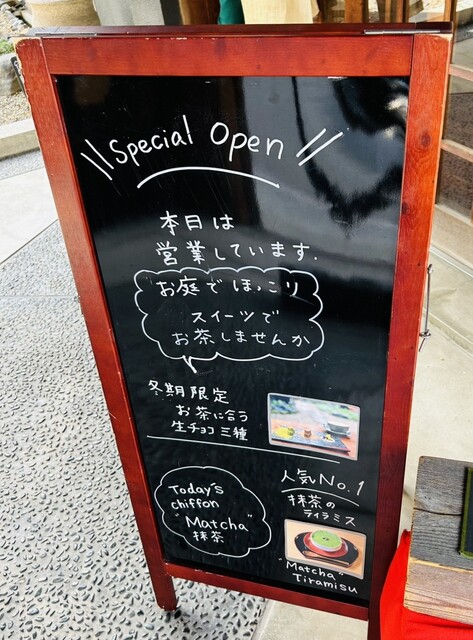 Special Open
本日は
営業しています.
お庭でほっこり
スイーツで
お茶しませんか
冬期限定
お茶に合う
生チョコ三種
人気No.1
抹茶の
ティラミス
"Matcha"
Tiramisu
Today's
chiffon
"Matcha"
抹茶